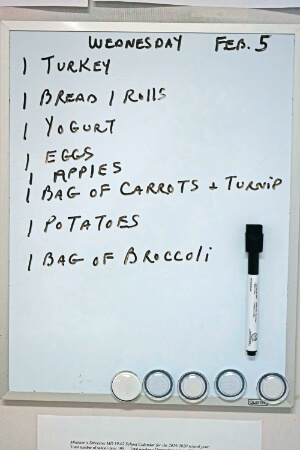 WEDNESDAY FEB. 5
1 TURKEY
1 BREAD / ROLLS
1 YOGURT
1 EGGS
1 APPIES
1 BAG OF CARROTS + TURNIP
1 POTATOES
1 BAG OF BROCCOLI
Quartet